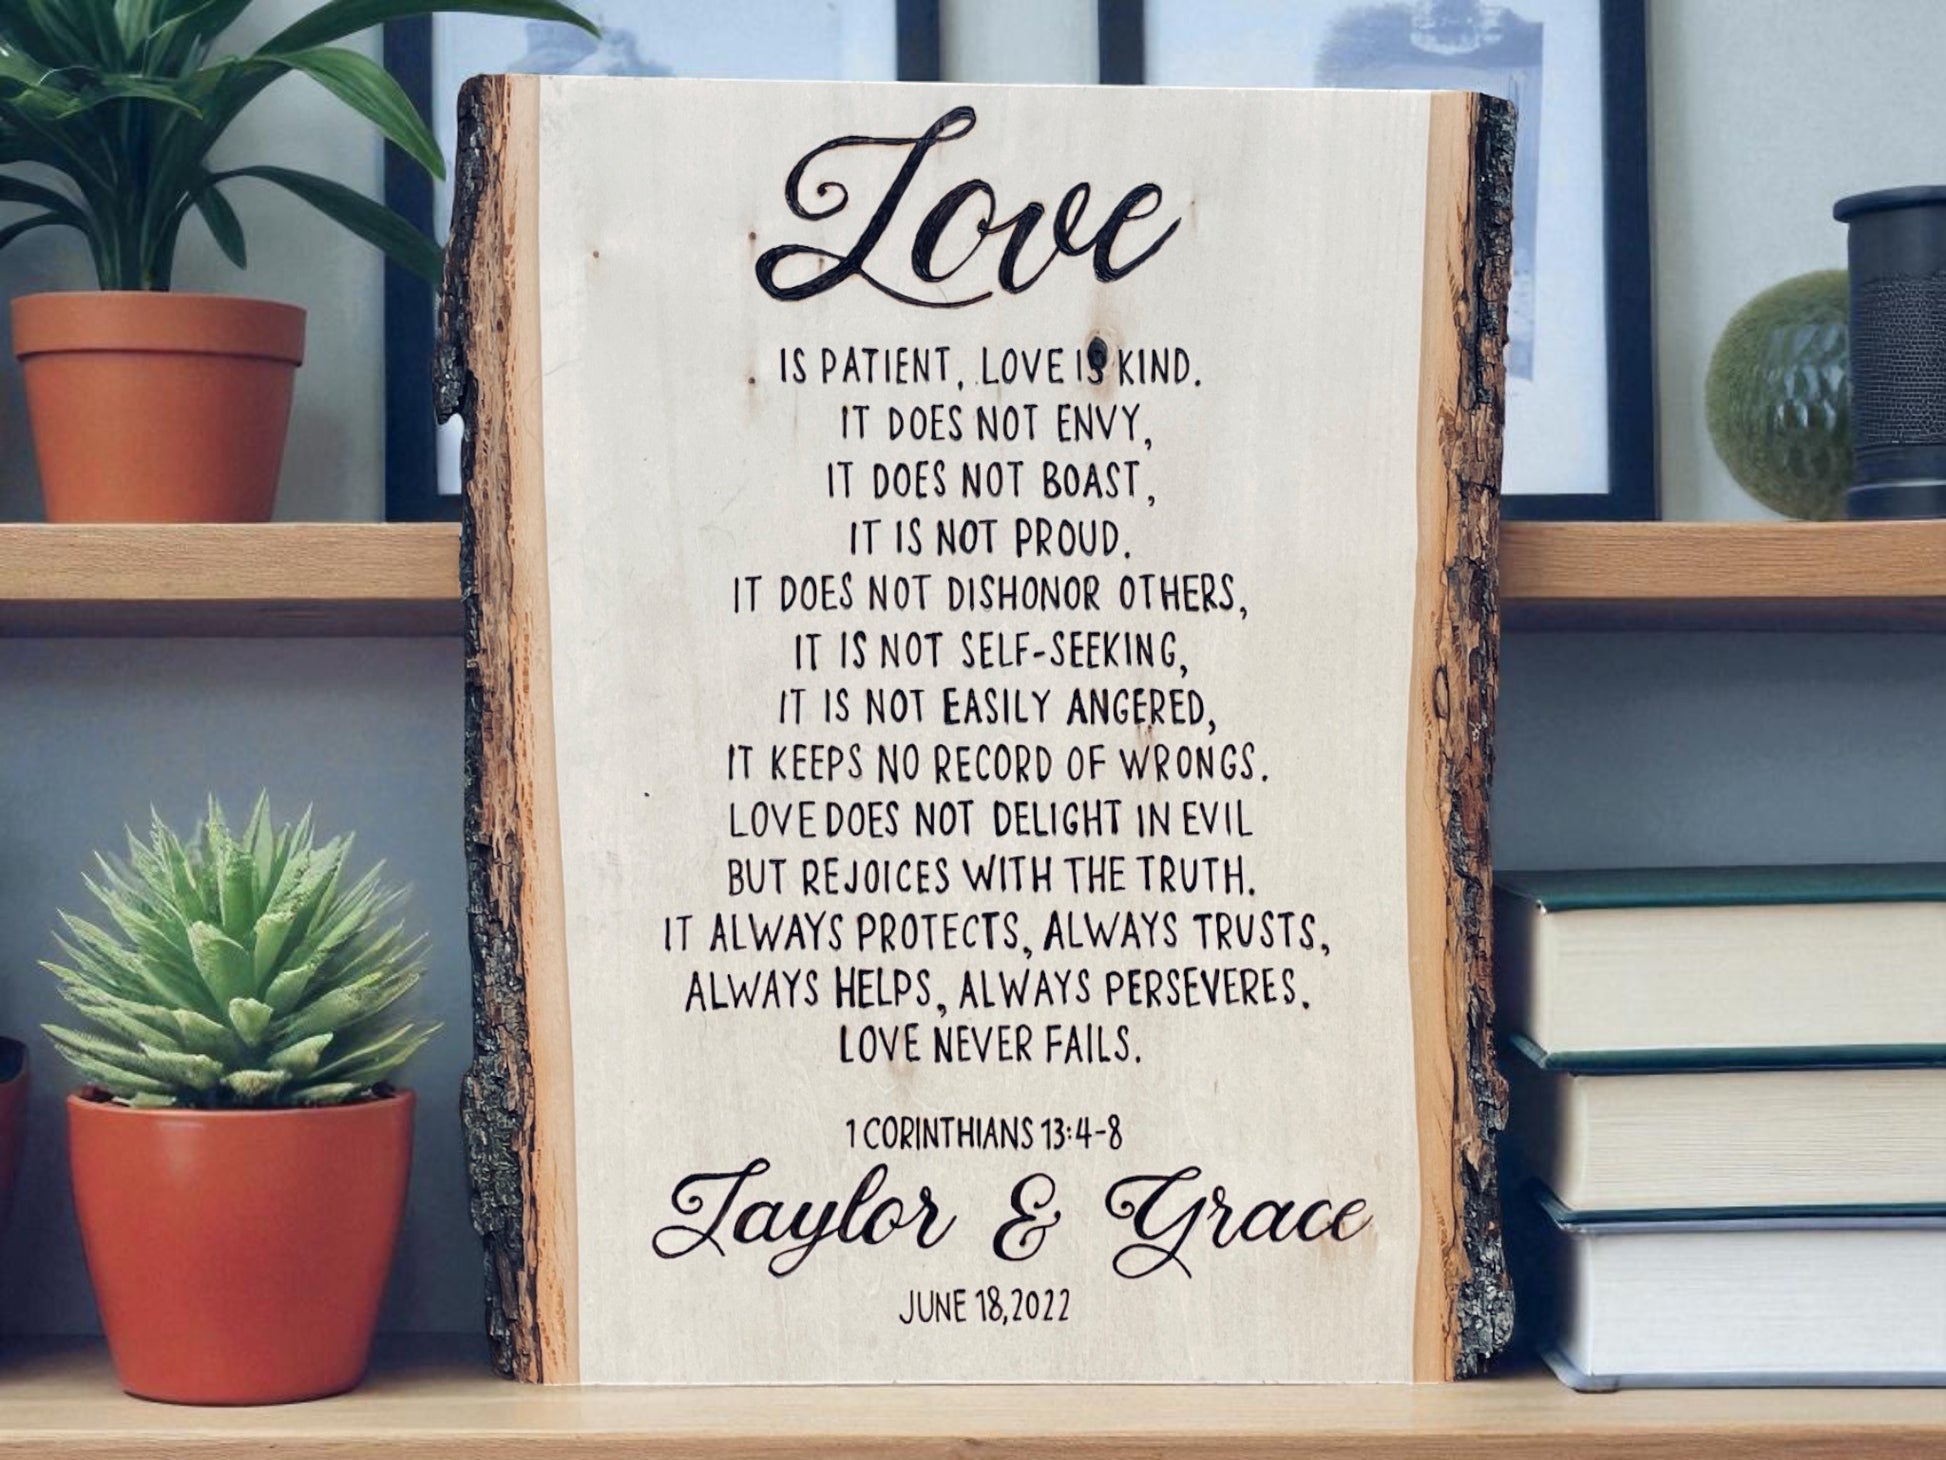 Love
IS PATIENT, LOVE IS KIND.
IT DOES NOT ENVY,
IT DOES NOT BOAST,
IT IS NOT PROUD.
IT DOES NOT DISHONOR OTHERS,
IT IS NOT SELF-SEEKING,
IT IS NOT EASILY ANGERED,
IT KEEPS NO RECORD OF WRONGS.
LOVE DOES NOT DELIGHT IN EVIL
BUT REJOICES WITH THE TRUTH.
IT ALWAYS PROTECTS, ALWAYS TRUSTS,
ALWAYS HELPS, ALWAYS PERSEVERES.
LOVE NEVER FAILS.
1 CORINTHIANS 13:4-8
Taylor & Grace
JUNE 18,2022